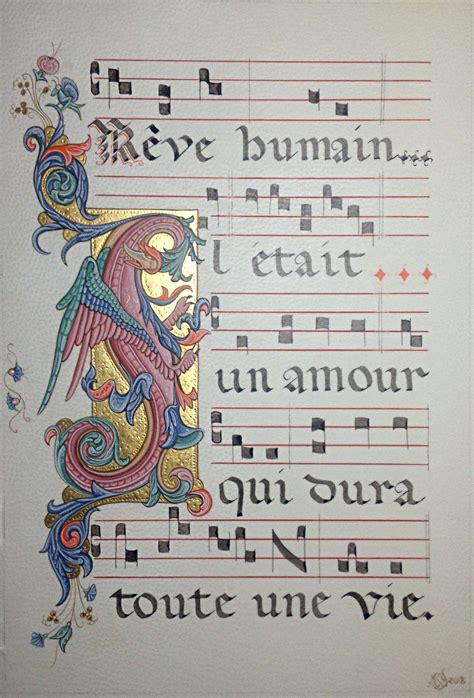 Rêve humain...
Il était...
un amour
qui dura
toute une vie.